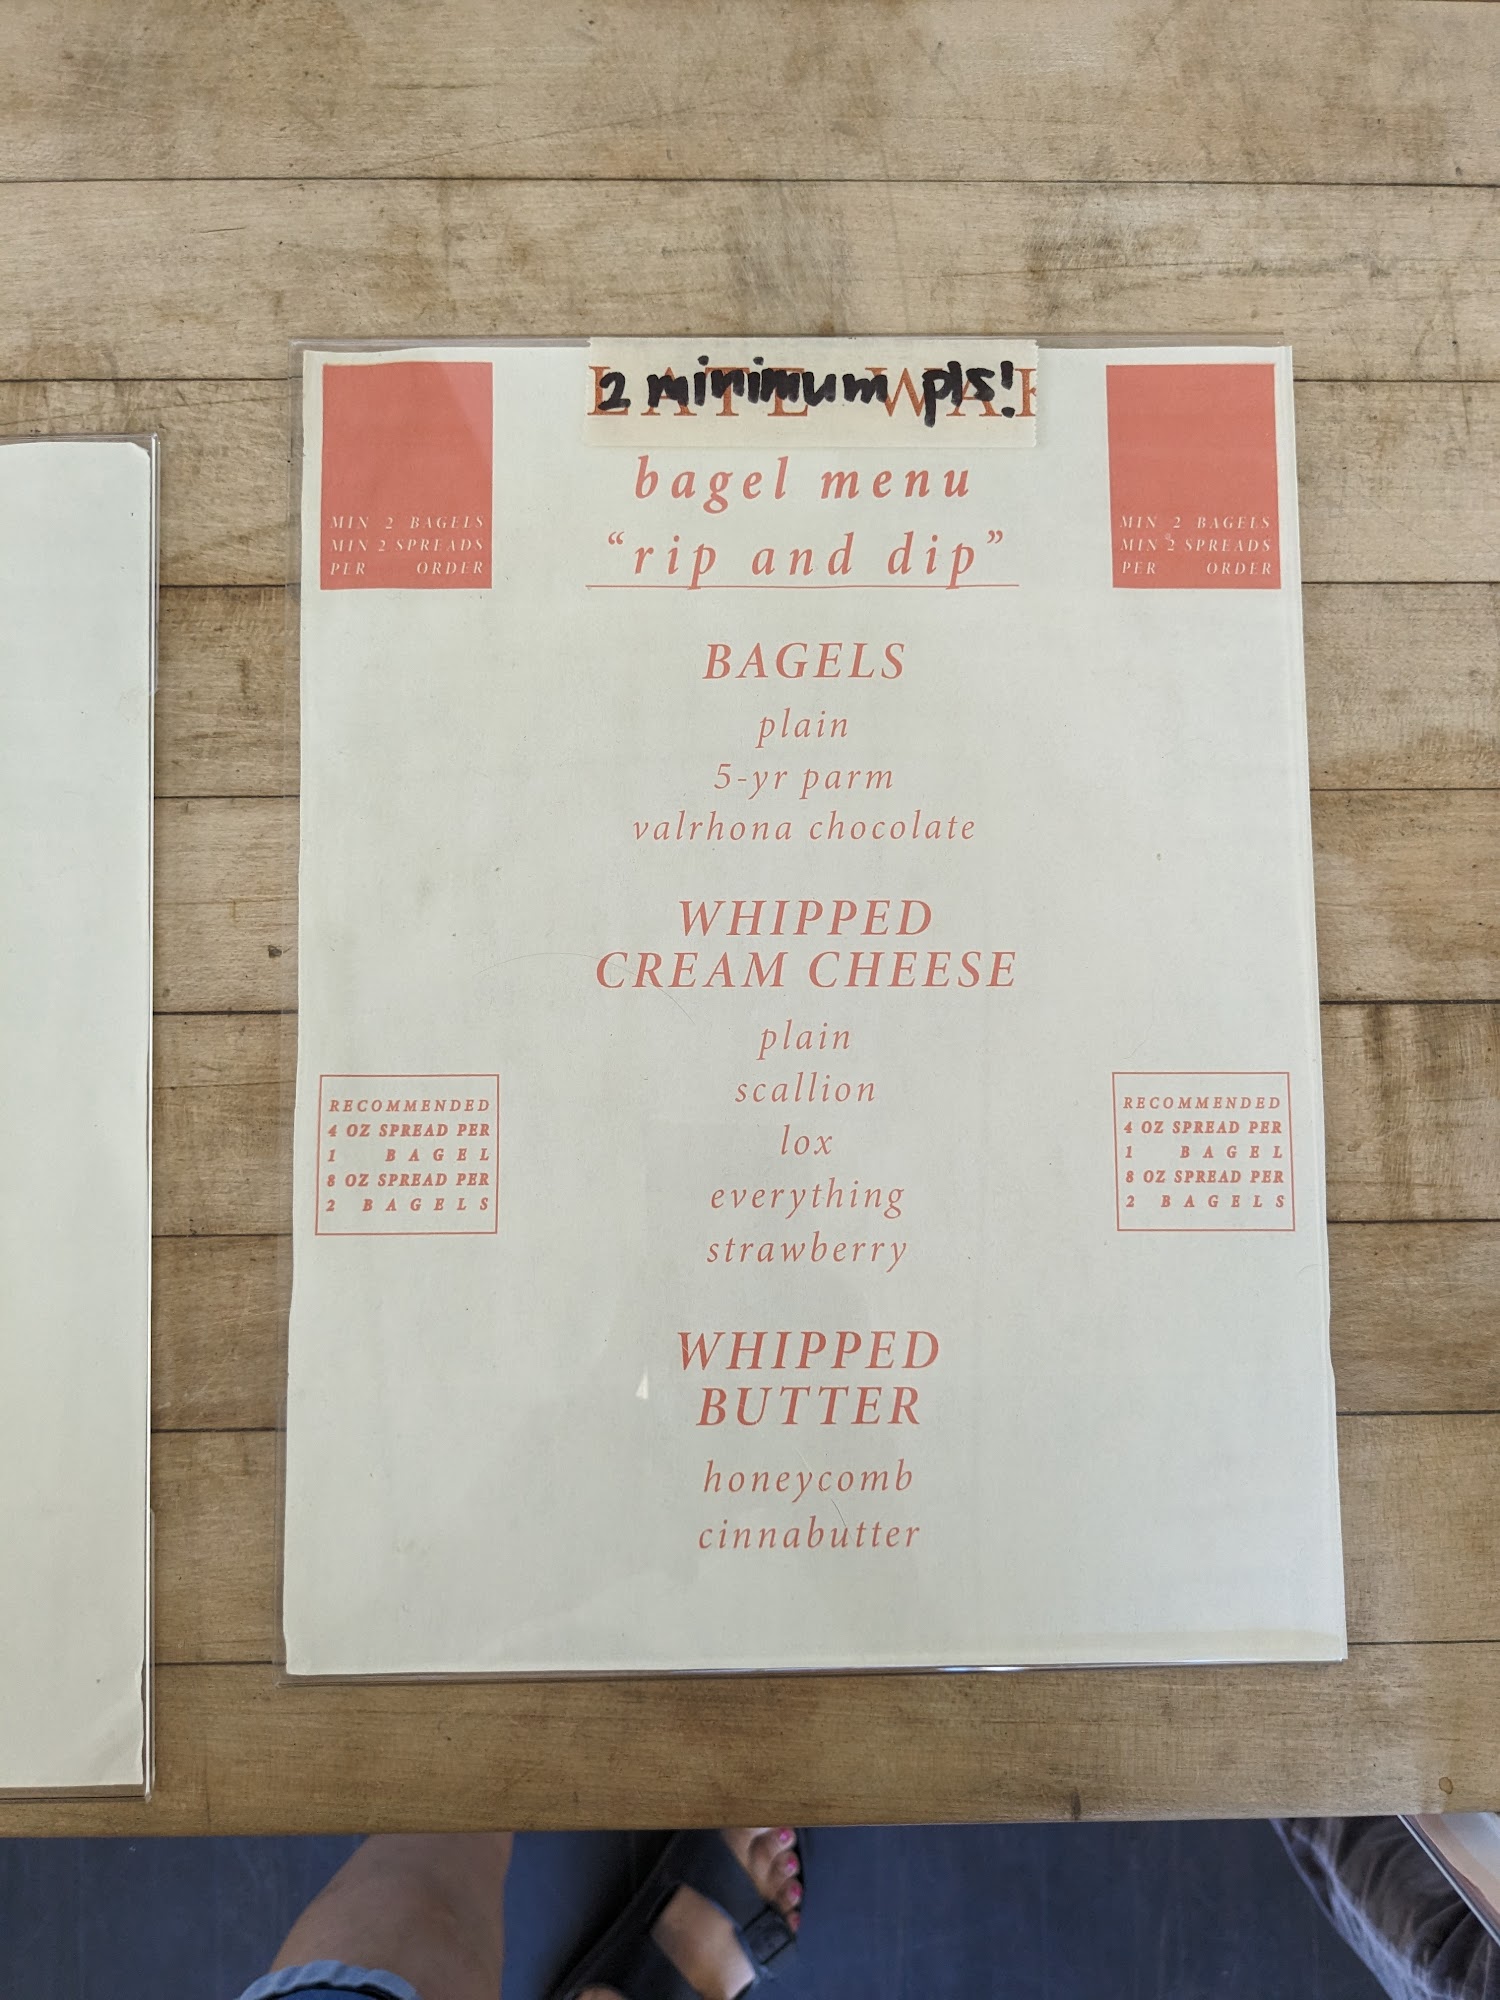 2 minimum pls!
LATE WA
bagel menu
“rip and dip”
MIN 2 BAGELS
MIN 2 SPREADS
PER ORDER
MIN 2 BAGELS
MIN 2 SPREADS
PER ORDER
BAGELS
plain
5-yr parm
valrhona chocolate
WHIPPED
CREAM CHEESE
plain
scallion
lox
everything
strawberry
RECOMMENDED
4 OZ SPREAD PER
1 BAGEL
8 OZ SPREAD PER
2 BAGELS
RECOMMENDED
4 OZ SPREAD PER
1 BAGEL
8 OZ SPREAD PER
2 BAGELS
WHIPPED
BUTTER
honeycomb
cinnabutter